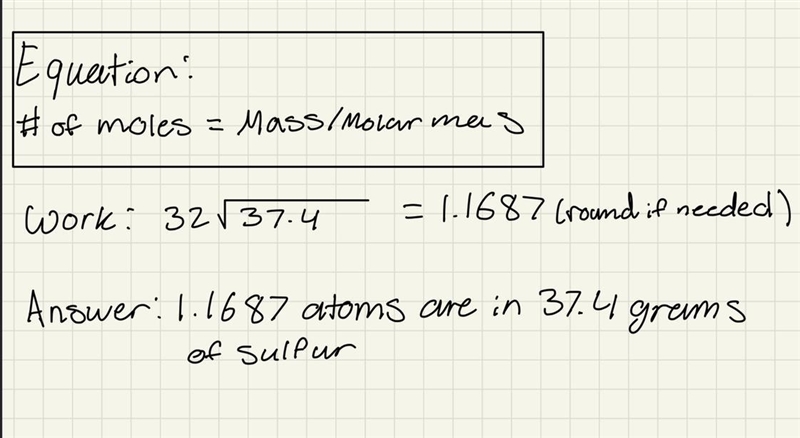 Equation:
# of moles = Mass/Molar mass
Work: 32√37.4 = 1.1687 (round if needed)
Answer: 1.1687 atoms are in 37.4 grams
of sulpur